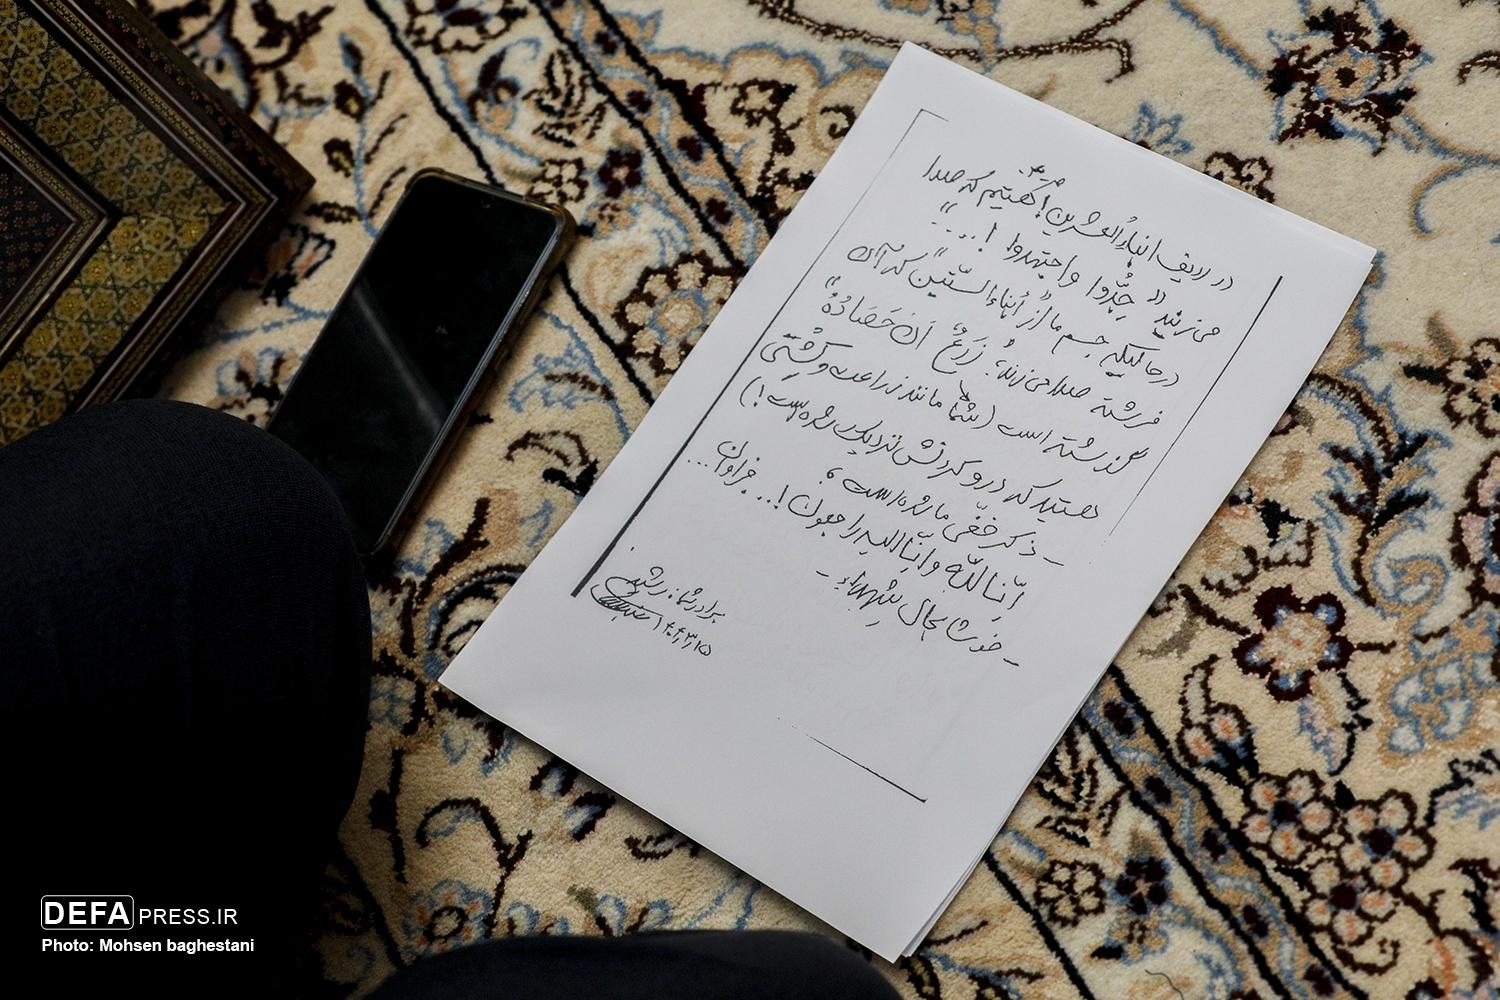 در ردیف ابناءُ العشرین! هستیم که صدا
می‌زنند "جِدُّوا واجتهدوا !...."
درحالیکه جسم ما از "اَبناءُ السِتّین" که آن
فرشته صدا می‌زند؛ زَرعٌ آنَ حَصَادُهُ"
گذشته است (شما مانند زراعت و کِشتی
هستید که درو کردنش نزدیک شده است!)
ـ ذکر خفّی ما شده است؛
اِنّا لله و اِنّا الیه راجعون !... فراوان ...
ـ خوشا بحال شهداء ـ
برادرشما: رشید
۱۴۰۴،۳،۱۵
DEFAPRESS.IR
Photo: Mohsen baghestani